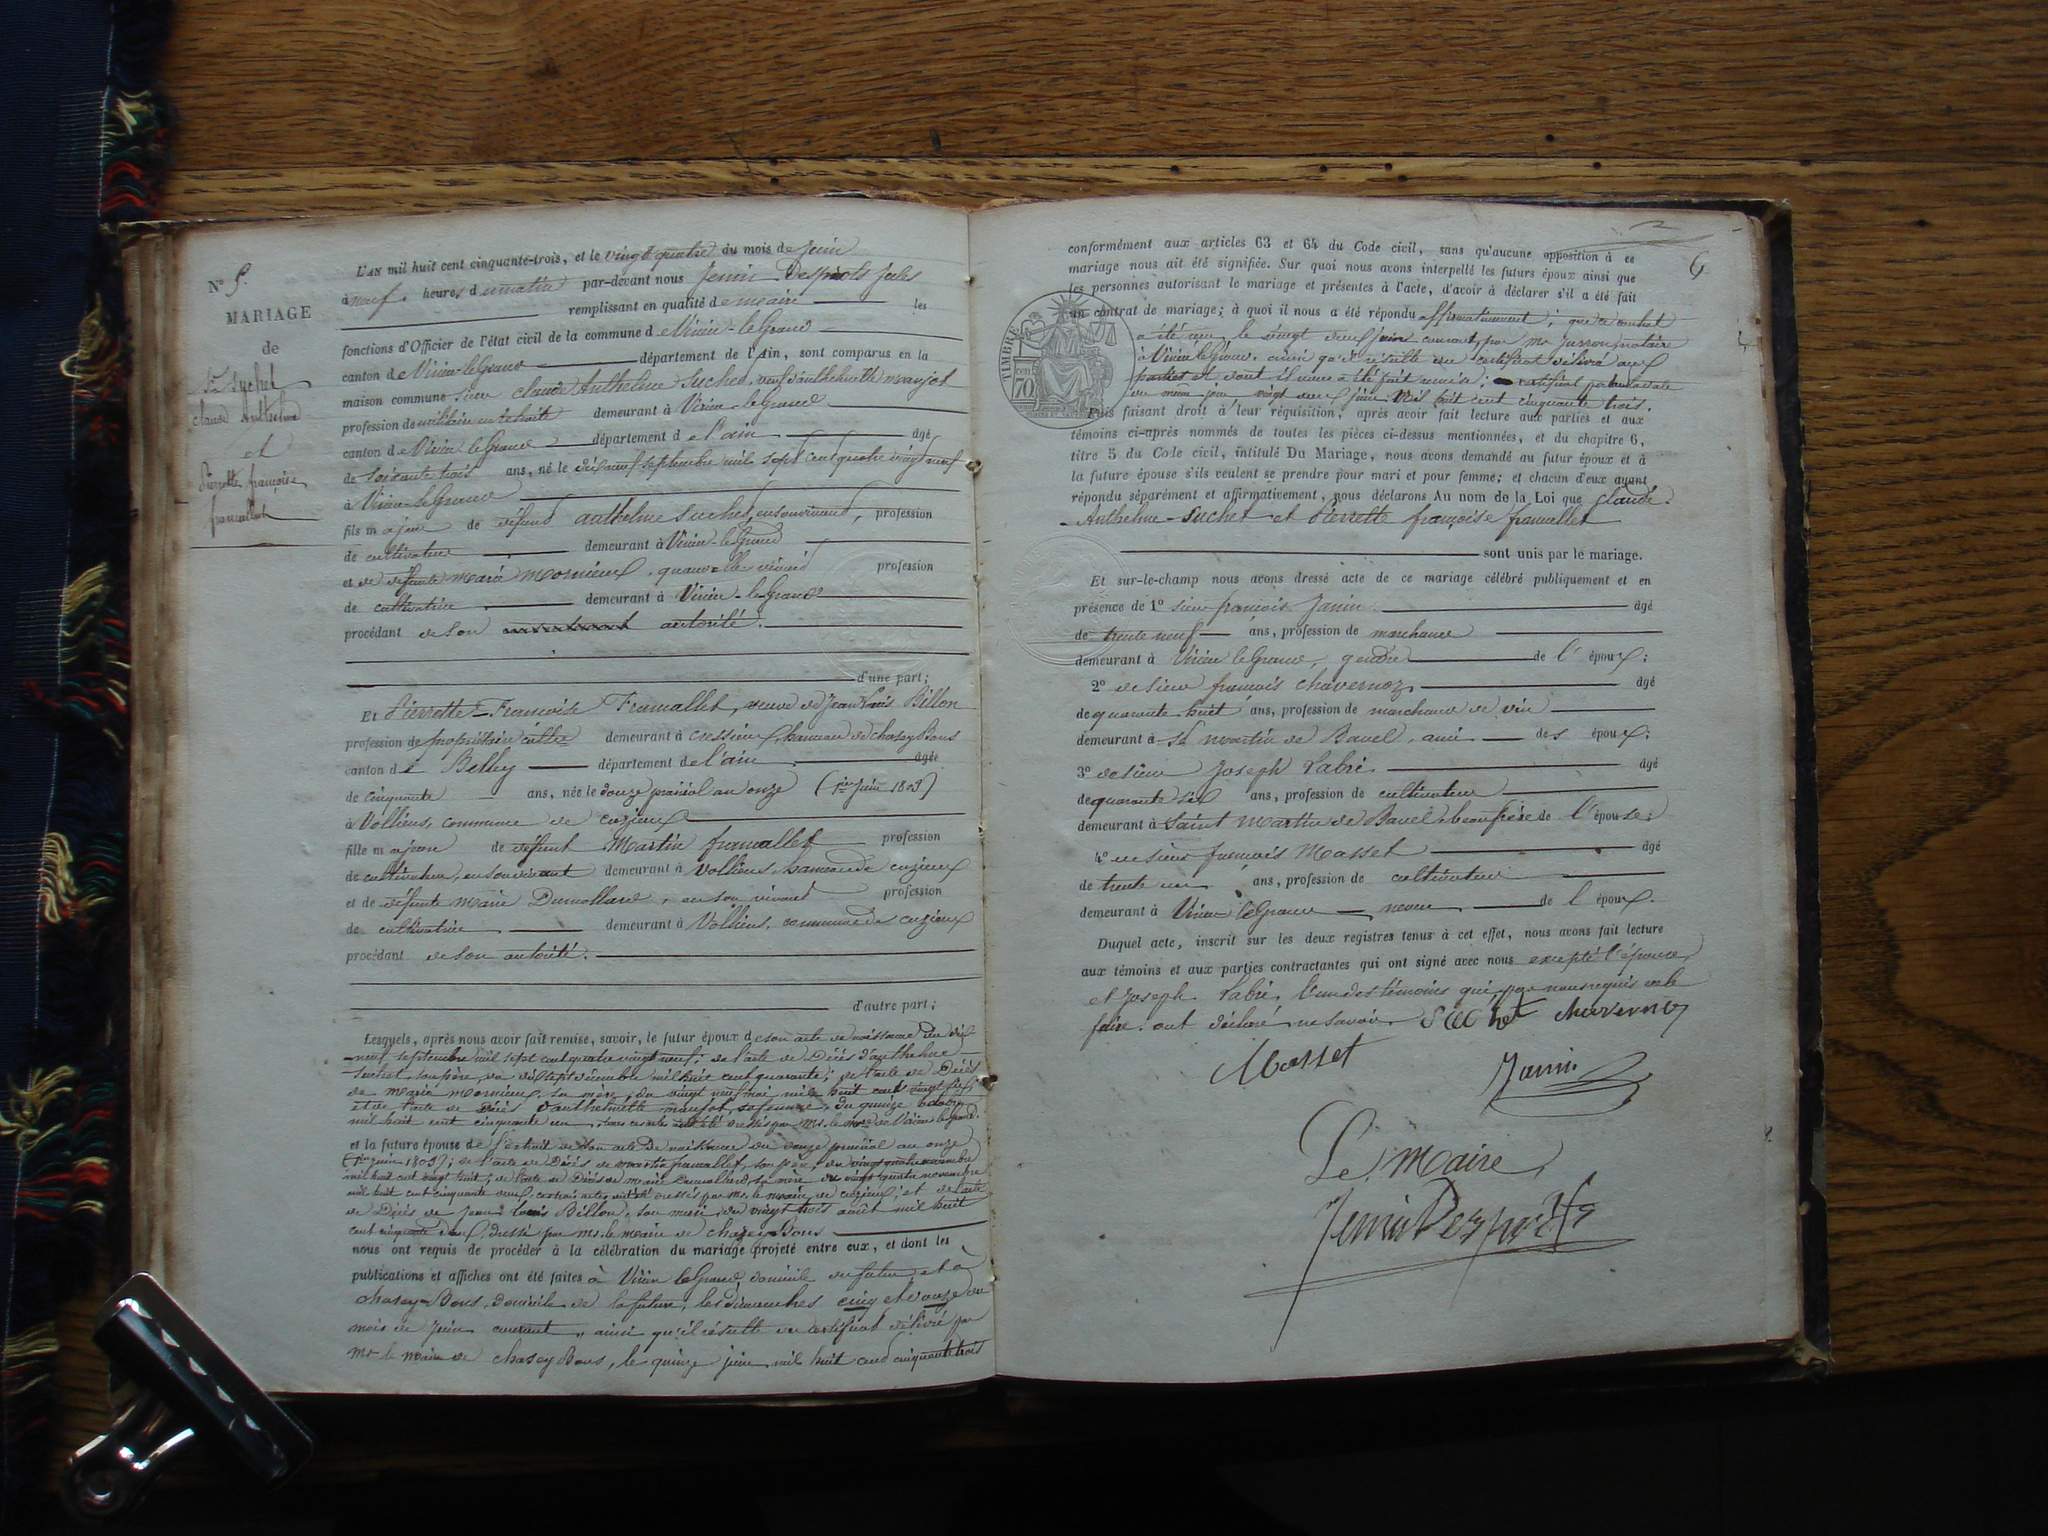 N° 5.
MARIAGE
de
Sr Suchet
claude Anthelme
et
Pierrette françoise
framallet
L'AN mil huit cent cinquante-trois, et le vingt quatre du mois de Juin
à neuf heures du matin par-devant nous Jenin Desprots Jules
remplissant en qualité de maire les
fonctions d'Officier de l'état civil de la commune de Virieu-le-Grand
canton de Virieu-le-Grand département de l'Ain, sont comparus en la
maison commune Sieur Claude Anthelme Suchet, veuf d'anthelmette manjot
profession de militaire en retraite demeurant à Virieu-le-Grand
canton de Virieu le Grand département de l'ain âgé
de soixante trois ans, né le dix neuf septembre mil sept cent quatre vingt neuf
à Virieu-le-Grand
fils majeur de défunt anthelme Suchet, en son vivant, profession
de cultivateur demeurant à Virieu-le-Grand
et de défunte marie mornieux, quand elle vivait profession
de cultivatrice demeurant à Virieu-le-Grand
procédant de son autorité.
d'une part;
Et Pierrette-Françoise Framallet, veuve de Jean Louis Billon
profession de propriétaire cultre demeurant à cressieu, hameau de chazey Bons
canton de Belley département de l'ain âgée
de cinquante ans, née le douze prairial an onze (1er Juin 1803)
à Vollien, commune de cuzieux
fille majeure de défunt Martin framallet profession
de cultivateur, en son vivant demeurant à Vollien, hameau de cuzieux
et de défunte marie Dumollard, en son vivant profession
de cultivatrice demeurant à Vollien, commune de cuzieux
procédant de son autorité.
d'autre part;
Lesquels, après nous avoir fait remise, savoir, le futur époux de son acte de naissance du dix
neuf septembre mil sept cent quatre vingt neuf; de l'acte de Décès d'anthelme
Suchet, son père, du dix sept décembre mil huit cent quarante; de l'acte de Décès
de marie mornieux, sa mère, du vingt neuf mai mil huit cent vingt six;
et de l'acte de Décès d'anthelmette manjot, sa femme, du quinze octobre
mil huit cent cinquante un, tous ces actes ont été dressés par Mr. le Maire de Virieu le Grand.
et la future épouse de l'extrait de son acte de naissance du douze prairial an onze
(1er Juin 1803); de l'acte de Décès de martin framallet, son père, du vingt quatre novembre
mil huit cent vingt huit; de l'acte de Décès de marie Dumollard, sa mère du vingt quatre novembre
mil huit cent cinquante deux, ces trois actes ont été dressés par Mr. le maire de cuzieux; et de l'acte
de Décès de Jean Louis Billon, son mari, du vingt trois août mil huit
cent cinquante deux, dressé par Mr. le maire de chazey Bons
nous ont requis de procéder à la célébration du mariage projeté entre eux, et dont les
publications et affiches ont été faites à Virieu le Grand, domicile du futur, et à
chazey-Bons, domicile de la future, les dimanches cinq et douze du
mois de Juin courant, ainsi qu'il résulte du certificat délivré par
Mr le maire de chazey Bons, le quinze juin mil huit cent cinquante trois
6
conformément aux articles 63 et 64 du Code civil, sans qu'aucune opposition à ce
mariage nous ait été signifiée. Sur quoi nous avons interpellé les futurs époux ainsi que
les personnes autorisant le mariage et présentes à l'acte, d'avoir à déclarer s'il a été fait
un contrat de mariage; à quoi il nous a été répondu affirmativement; que ce contrat
a été reçu le vingt deux juin courant, par Mr Jusson, notaire
à Virieu le Grand, ainsi qu'il résulte du certificat délivré aux
parties et dont il nous a été fait remise; certificat portant la date
du même jour vingt deux juin mil huit cent cinquante trois.
Puis faisant droit à leur réquisition, après avoir fait lecture aux parties et aux
témoins ci-après nommés de toutes les pièces ci-dessus mentionnées, et du chapitre 6,
titre 5 du Code civil, intitulé Du Mariage, nous avons demandé au futur époux et à
la future épouse s'ils veulent se prendre pour mari et pour femme; et chacun d'eux ayant
répondu séparément et affirmativement, nous déclarons Au nom de la Loi que Claude
Anthelme Suchet et Pierrette françoise framallet
sont unis par le mariage.
Et sur-le-champ nous avons dressé acte de ce mariage célébré publiquement et en
présence de 1° sieur françois Janin âgé
de trente neuf ans, profession de marchand
demeurant à Virieu le Grand, gendre de l'époux;
2° de sieur françois Chavernoz âgé
de quarante huit ans, profession de marchand de vin
demeurant à St martin de Bavel, ami des époux;
3° de sieur Joseph Labri âgé
de quarante six ans, profession de cultivateur
demeurant à Saint Martin de Bavel, beau frère de l'épouse;
4° de sieur françois Masset âgé
de trente un ans, profession de cultivateur
demeurant à Virieu le Grand, neveu de l'époux.
Duquel acte, inscrit sur les deux registres tenus à cet effet, nous avons fait lecture
aux témoins et aux parties contractantes qui ont signé avec nous excepté l'épouse
et Joseph Labri, l'un des témoins qui, par nous requis de le
faire, ont déclaré ne savoir. Suchet Chavernoz
Masset Janin
Le Maire,
Jenin Desprots
TIMBRE
70